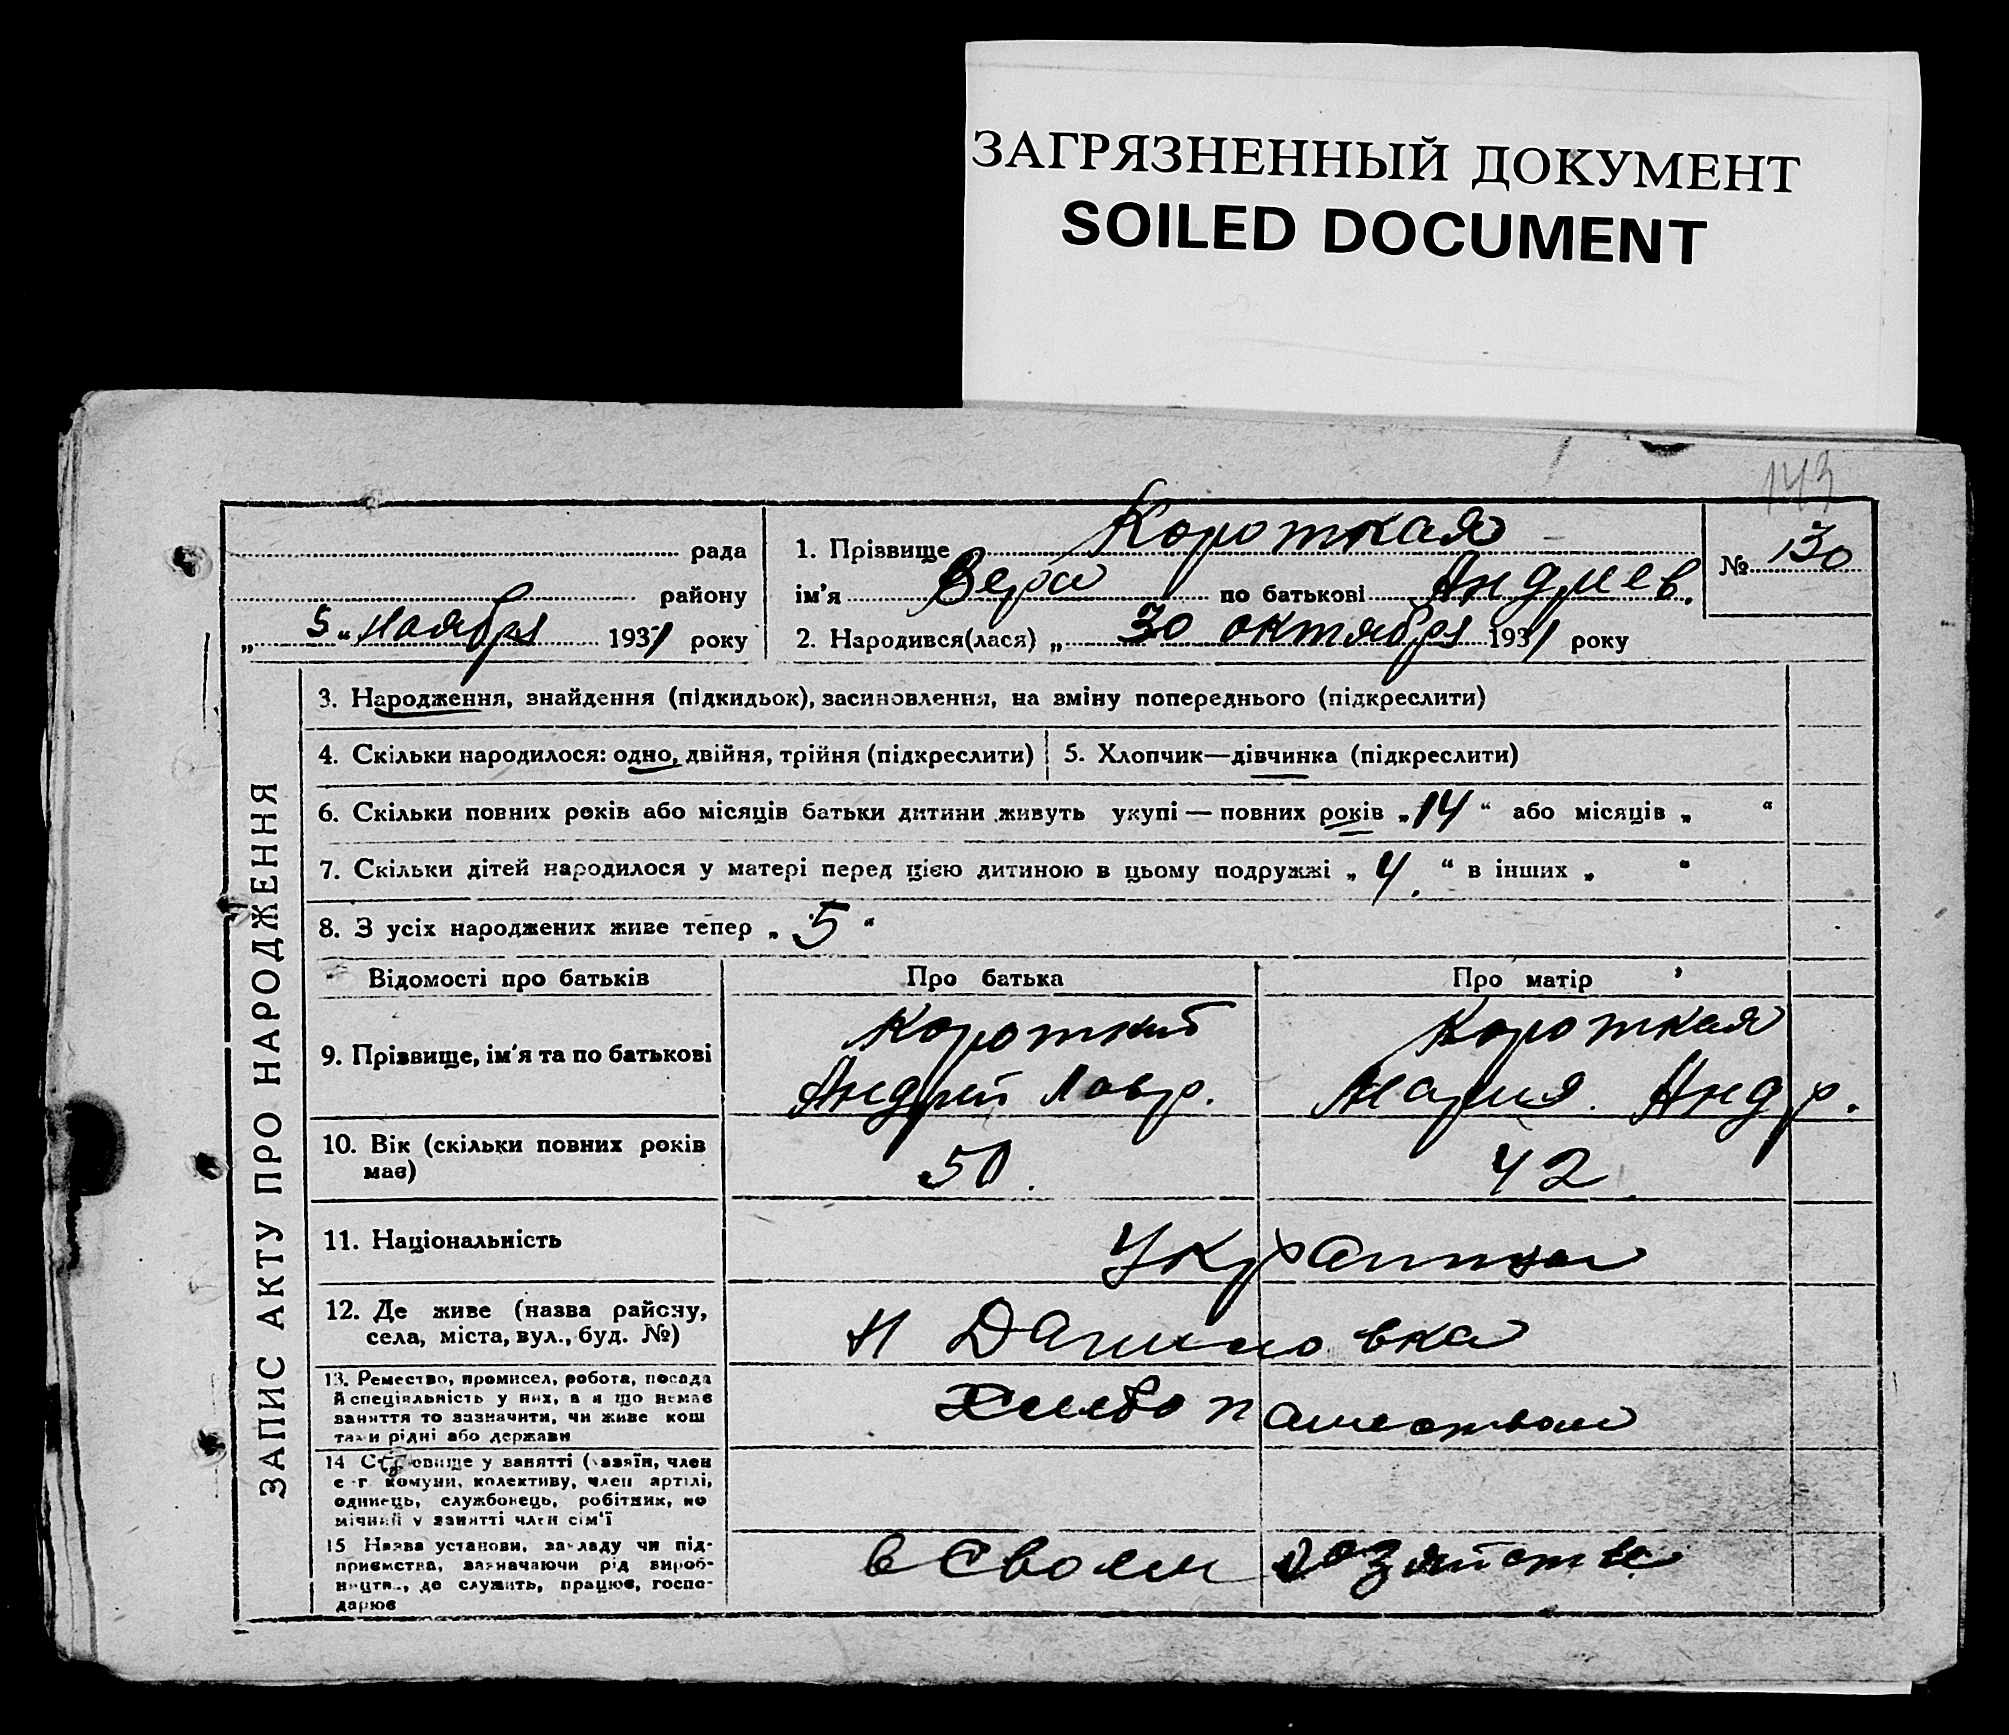 ЗАГРЯЗНЕННЫЙ ДОКУМЕНТ
SOILED DOCUMENT
143
рада
району
„ 5 “ Ноября 1931 року
1. Прізвище Короткая
ім'я Вера по батькові Андреев.
2. Народився(лася) „ 30 октября 1931 року
№ 130
ЗАПИС АКТУ ПРО НАРОДЖЕННЯ
3. Народження, знайдення (підкидьок), засиновлення, на зміну попереднього (підкреслити)
4. Скільки народилося: одно, двійня, трійня (підкреслити)
5. Хлопчик—дівчинка (підкреслити)
6. Скільки повних років або місяців батьки дитини живуть укупі — повних років „ 14 “ або місяців „ “
7. Скільки дітей народилося у матері перед цією дитиною в цьому подружжі „ 4. “ в інших „ “
8. З усіх народжених живе тепер „ 5 “
Відомості про батьків
Про батька
Про матір
9. Прізвище, ім'я та по батькові
Короткий
Андрей Лавр.
Короткая
Мария. Андр.
10. Вік (скільки повних років
має)
50.
42
11. Національність
Украинцы
12. Де живе (назва району,
села, міста, вул., буд. №)
Н Даниловка
13. Ремество, промисел, робота, посада
й спеціяльність у них, а я що немає
заняття то зазначити, чи живе кош
тами рідні або держави
Хлебопашеством
14 Становище у занятті (хазяїн, член
с-г комуни, колективу, член артілі,
одинець, службовець, робітник, по
мічний у занятті член сім'ї
15 Назва установи, закладу чи під-
приємства, зазначаючи рід вироб-
ництв., де служить, працює, госпо-
дарює
в своем хозяйстве